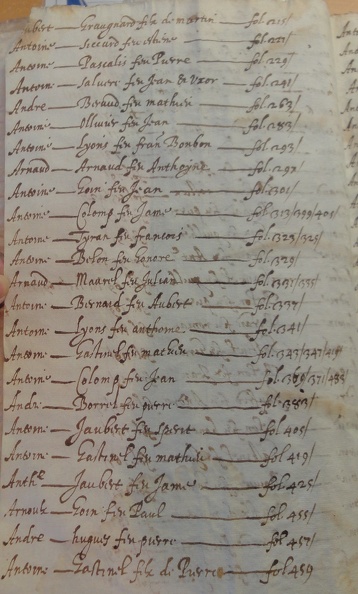 Aubert — Graugnard filz de martin — fol 215/
Antoine — Siceurd feu estine — fol 221/
Antoine — Pascalis feu Pierre — fol 229/
Antoine — Salvere feu Jean & Uxor — fol 241/
Andre — feu mathieu — fol 263/
Antoine — Ollivier feu Jean — fol 283/
Antoine — Lyons feu fran Bonbon — fol 293/
Arnaud — Arnaud feu Anthoyne — fol 297/
Antoine — Goin feu Jean — fol 301/
Antoine — Colomp feu Jame — fol 313/399/401/
Antoine — Tyran feu francois — fol 323/325/
Antoine — Bolon feu honore — fol 329/
Arnaud — Maurel feu Julian — fol 331/335/
Antoine — Bernard feu Aubert — fol 337/
Antoine — Lyons feu anthoine — fol 341/
Antoine — Gastinel feu mathieu — fol 343/347/
Antoine — Colomp feu Jean — fol
Andre — Borrel feu pierre — fol 383/
Antoine — Jaubert feu Sperit — fol 405/
Antoine — Gastinel feu mathieu — fol 419/
Anthe — Jaubert feu Jame — fol 425/
Arnoulx — Goin feu Paul — fol 455/
Andre — hugues feu pierre — fol 457/
Antoine — Gastinel filz de Pierre — fol 459